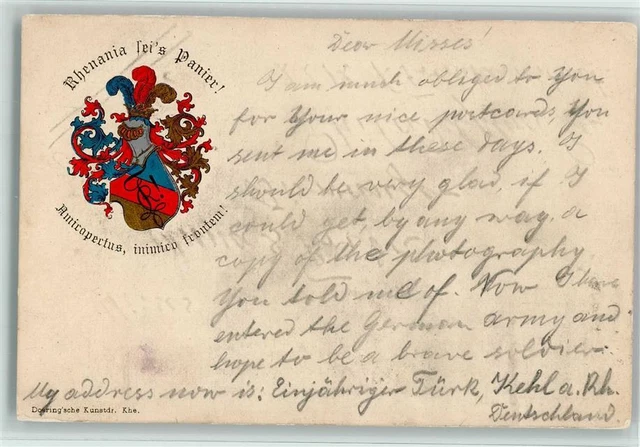 Rhenania sei's Panier!
Amico pectus, inimico frontem!
Dear Misses!
I am much obliged to You
for Your nice postcards, You
sent me in these days. I
should be very glad, if I
could get, by any way, a
copy of the photography
You told me of. Now I have
entered the German army and
hope to be a brave soldier.
My address now is: Einjähriger Türk, Kehl a. Rh.
Deutschland.
Doering'sche Kunstdr. Khe.